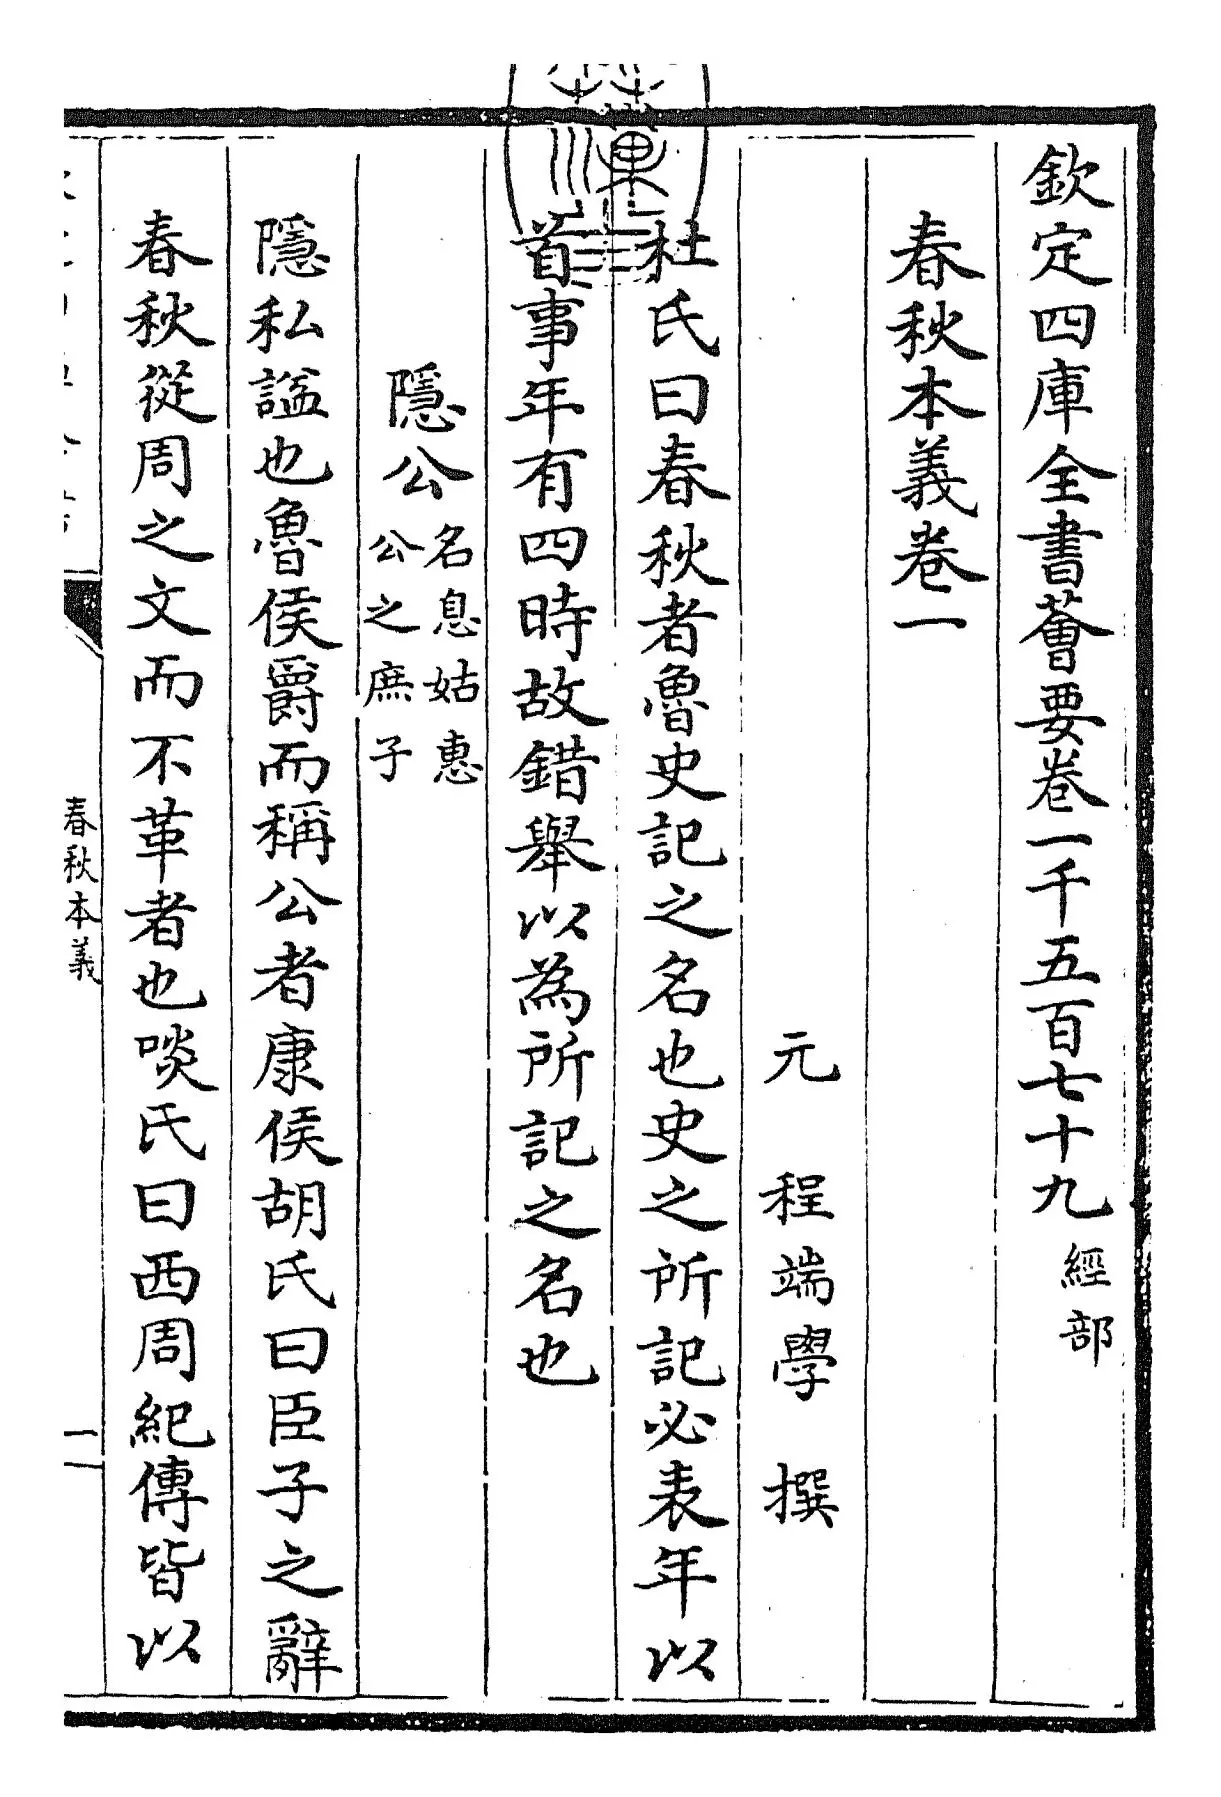 欽定四庫全書薈要卷一千五百七十九經部
春秋本義卷一
元 程端學 撰
杜氏曰春秋者魯史記之名也史之所記必表年以
首事年有四時故錯舉以為所記之名也
隱公名息姑惠公之庶子
隱私諡也魯侯爵而稱公者康侯胡氏曰臣子之辭
春秋從周之文而不革者也啖氏曰西周紀傳皆以
春秋本義
一